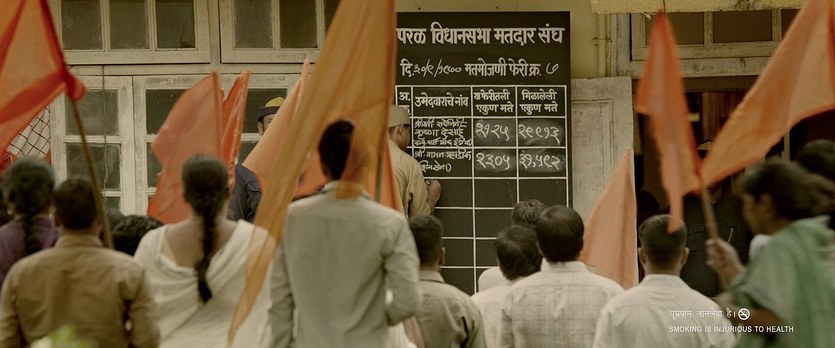 परळ विधानसभा मतदार संघ
दि.३०/९/१९७० मतमोजणी फेरी क्र. ७
अ. उमेदवाराचे नांव या फेरीतली एकुण मते मिळालेली एकुण मते
कृष्णा देसाई २१२५ २९९१३
२३०५ ३१,५१२
धूम्रपान जानलेवा है।
SMOKING IS INJURIOUS TO HEALTH